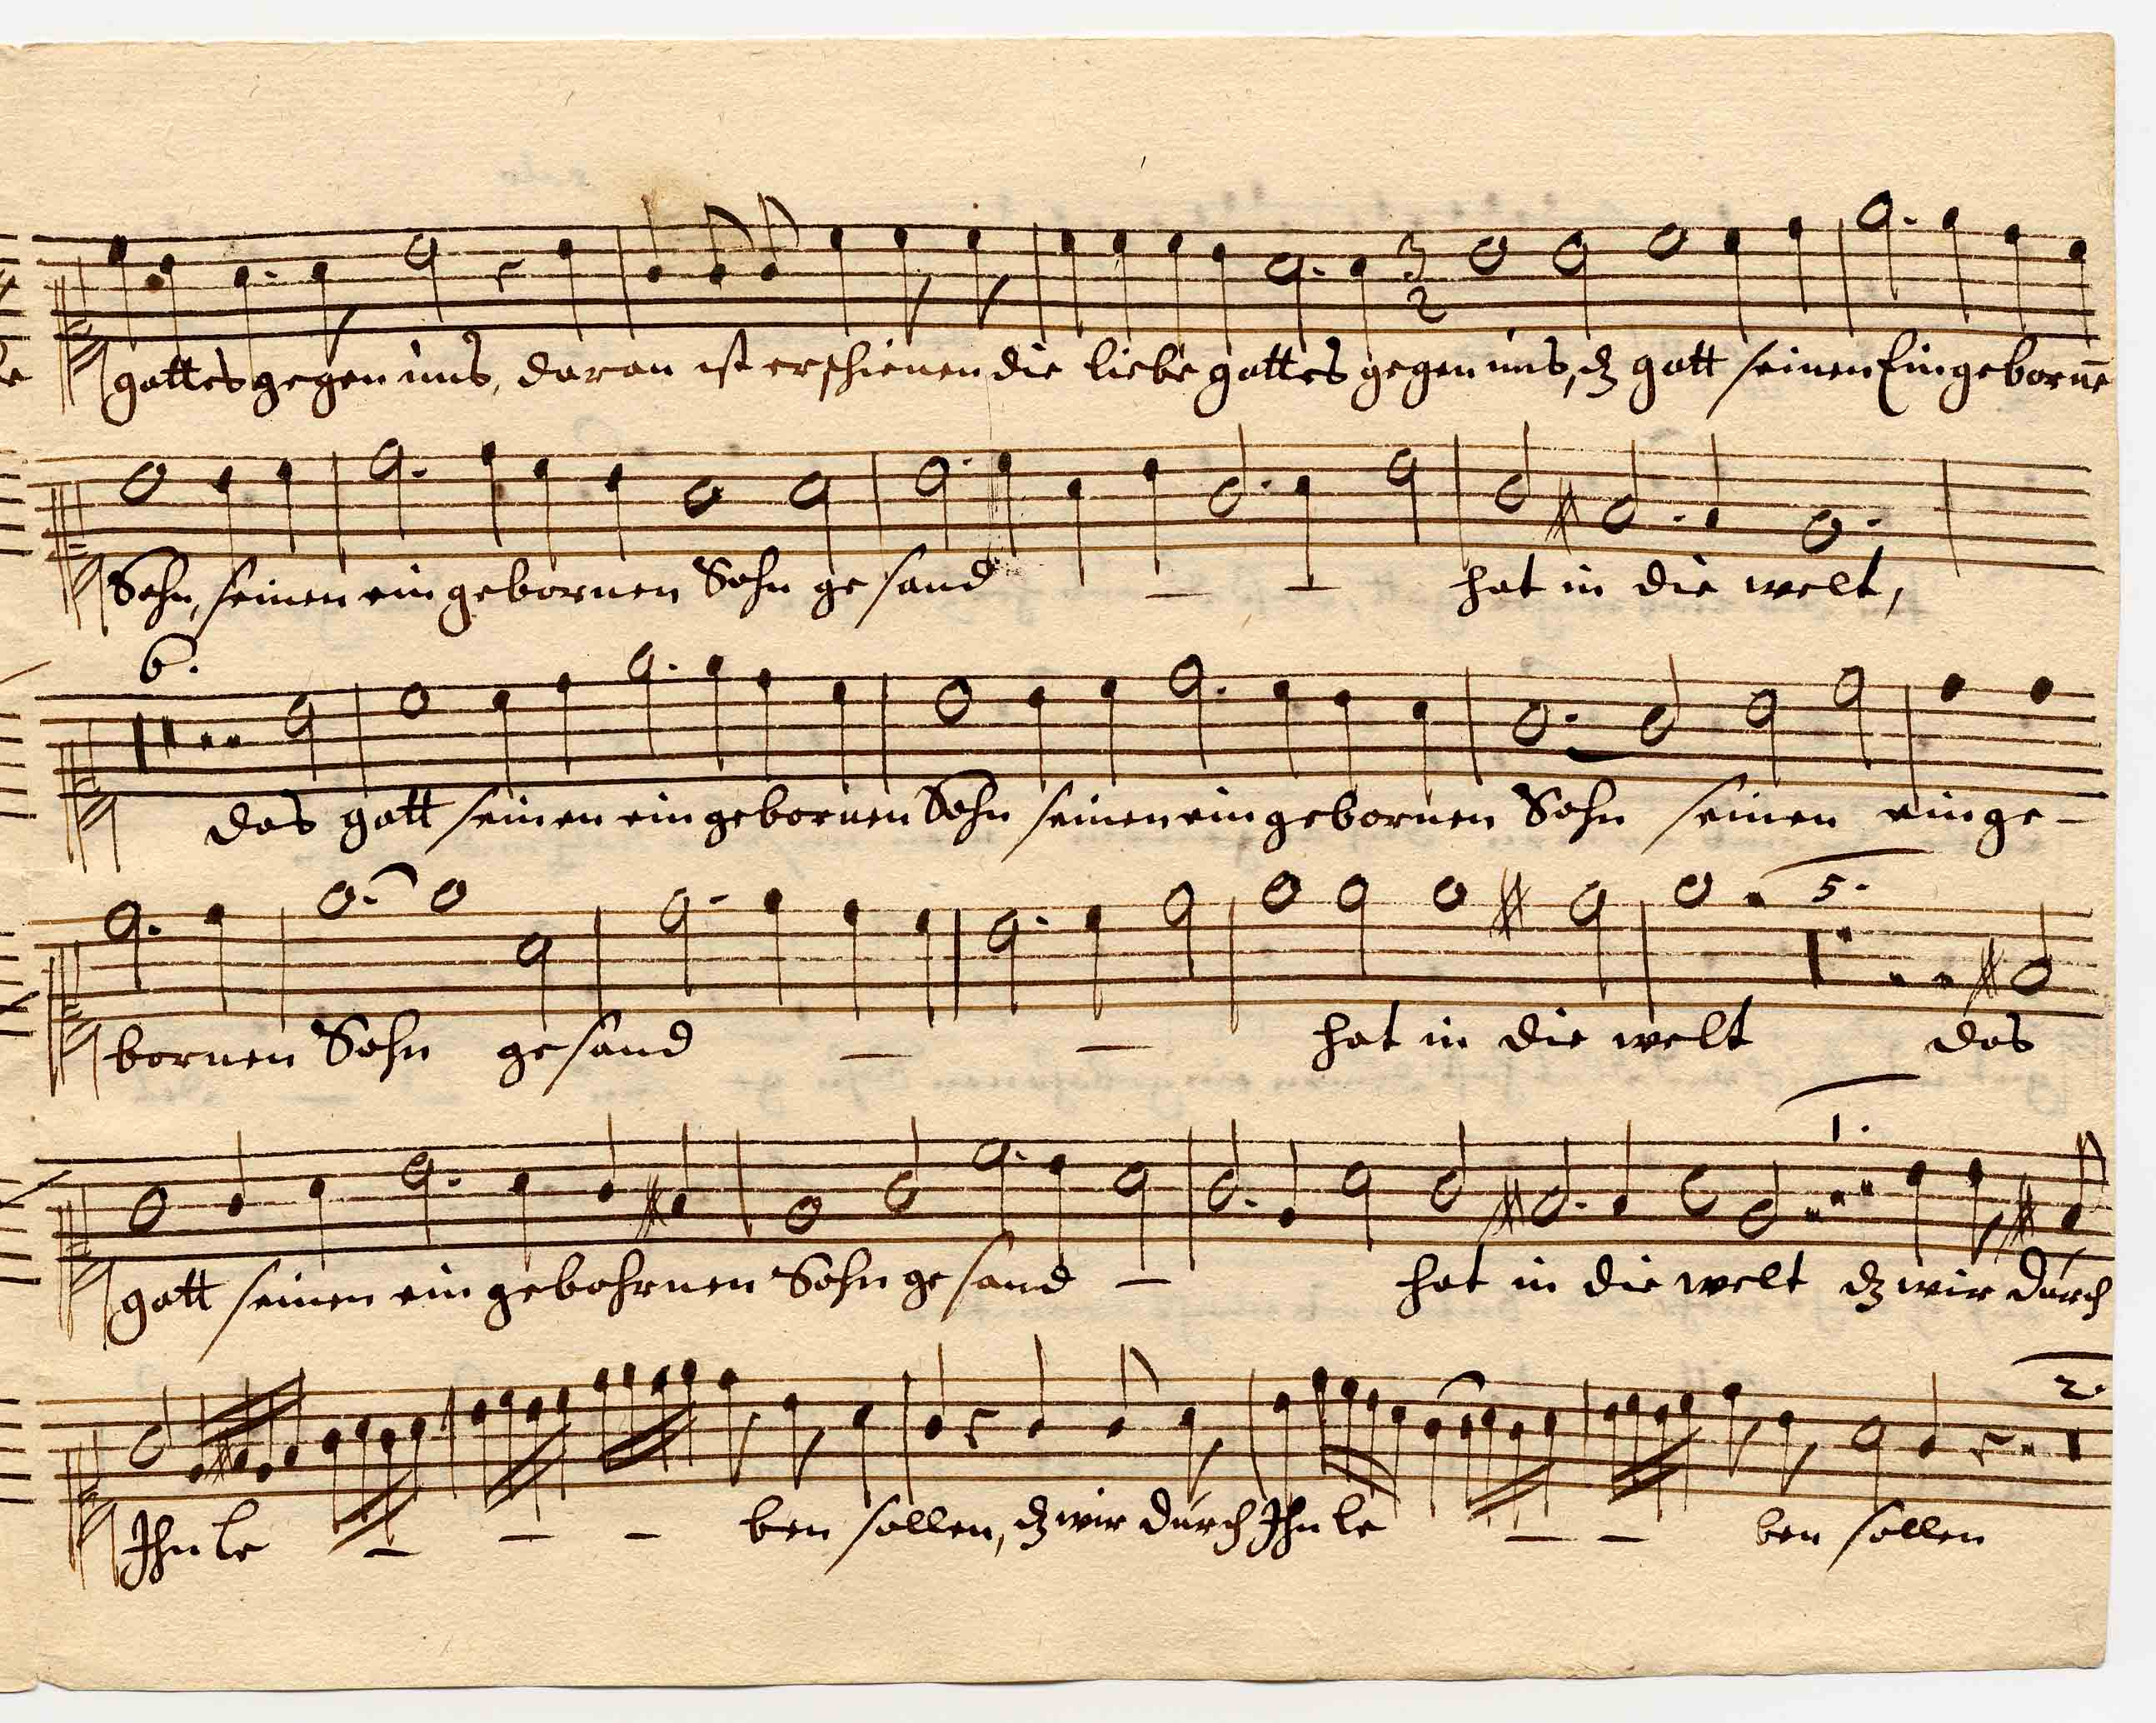 gottes gegen uns, daran ist erschienen die liebe gottes gegen uns, dz gott seinen Eingebornē
Sohn, seinen ein gebornen Sohn ge sand — — hat in die welt,
6.
das gott seinen ein gebornen Sohn seinen ein gebornen Sohn seinen einge-
5.
bornen Sohn ge sand — — hat in die welt das
1.
gott seinen ein gebohrnen Sohn ge sand — hat in die welt dz wir durch
2.
Ihn le — — — ben sollen, dz wir durch Ihn le — — ben sollen